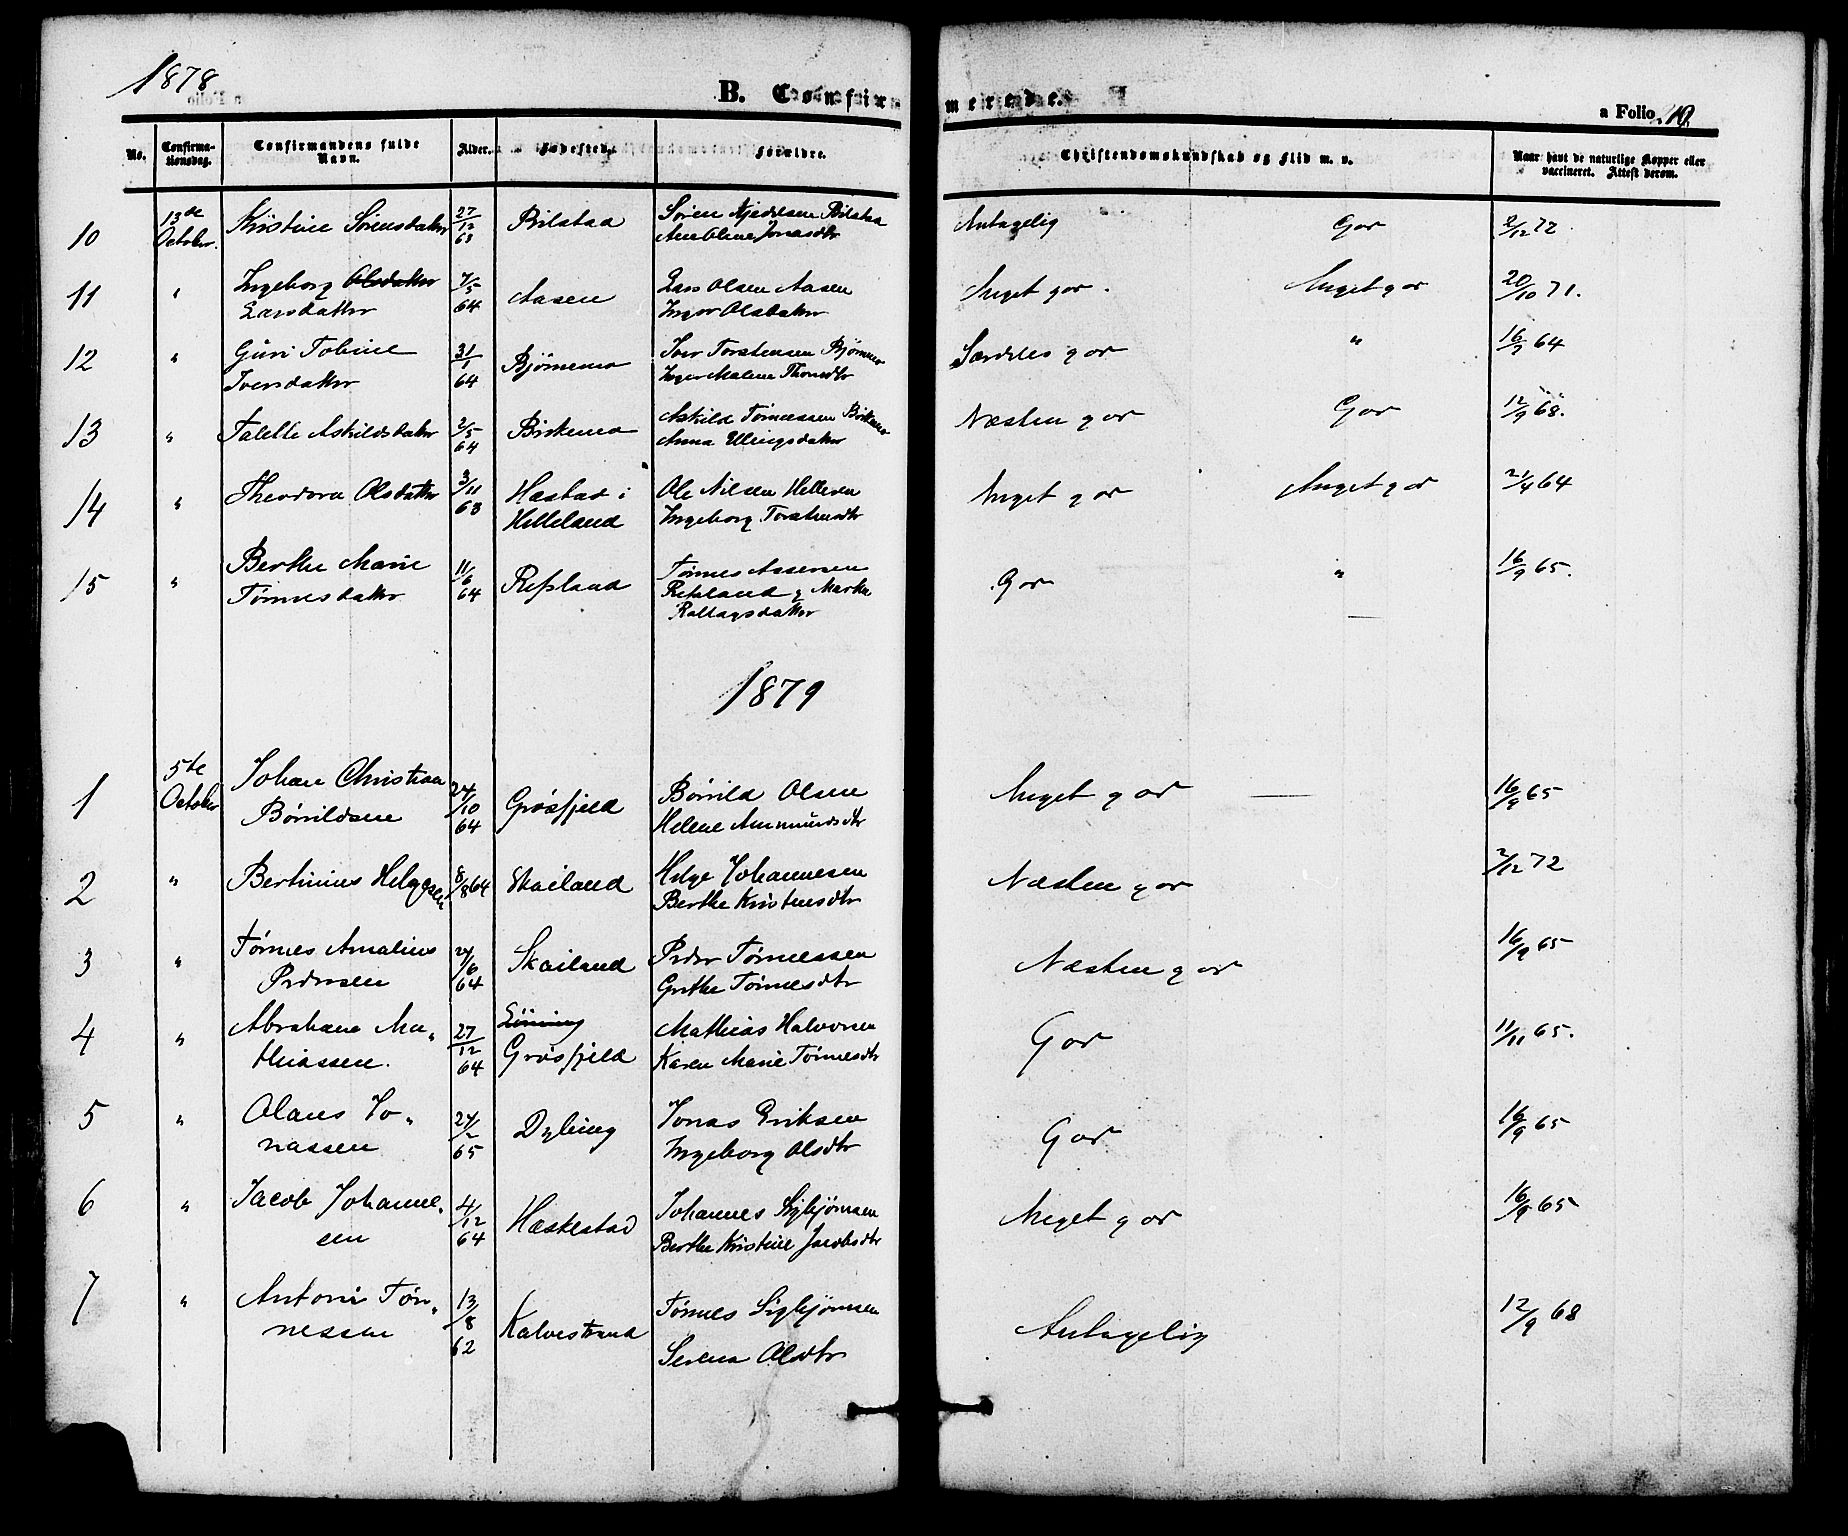 1878
B. Confirmerede.
a Folio 210.
No. Confirmationsdag. Confirmandens fulde Navn. Alder. Fødested. Forældre. Christendomskundskab og Flid m. v. Naar havt de naturlige Kopper eller vaccineret. Attest derom.
10 13de October. Kristine Sørensdatter 27/12 63 Bilstad Søren Bilstad Ane Oline Jonasdtr Antagelig God 2/12 72.
11 " Ingeborg Olsdatter Larsdatter 7/5 64 Aasen Lars Olsen Aasen Inger Olsdatter Meget god. Meget god 20/10 71.
12 " Guri Tobine Iversdatter 31/1 64 Bjørnemo Iver Torstensen Bjørnemo Inger Malene Thomsdtr Særdeles god " 16/9 64
13 " Talette Askildsdatter 2/5 64 Birkemo Askild Tønnessen Birkemo Anna Ellingsdatter Næsten god God 12/9 68.
14 " Theodora Olsdatter 3/11 63 Hæstad i Helleland Ole Nilsen Helleren Ingeborg Torstensdtr Meget god Meget god 2/4 64
15 " Berthe Marie Tønnesdatter 11/6 64 Refsland Tønnes Assersen Refsland & Marta God " 16/9 65.
1879
1 5te October Johan Christian Børrildsen 24/10 64 Grøsfjeld Børrild Olsen Helene Ammundsdtr Meget god — 16/9 65
2 " Bertinius Helgesen 8/8 64 Skailand Helge Johannesen Berthe Kristensdtr Næsten god 2/12 72
3 " Tønnes Amalius Pedersen 24/6 64 Skailand Peder Tønnessen Grethe Tønnesdtr Næsten god 16/9 65
4 " Abraham Mathiassen. 27/12 64 Grøsfjeld Mathias Halvorsen Karen Marie Tønnesdtr God 11/11 65.
5 " Olaus Jonassen 24/2 65 Dybing Jonas Eriksen Ingeborg Olsdtr God 16/9 65
6 " Jacob Johannesen 4/12 64 Hæskestad Johannes Sigbjørnsen Berthe Kristine Jacobsdtr Meget god 16/9 65
7 " Antoni Tønnessen 13/8 62 Kalvestrand Tønnes Sigbjørnsen Serena Olsdtr Antagelig 12/9 68